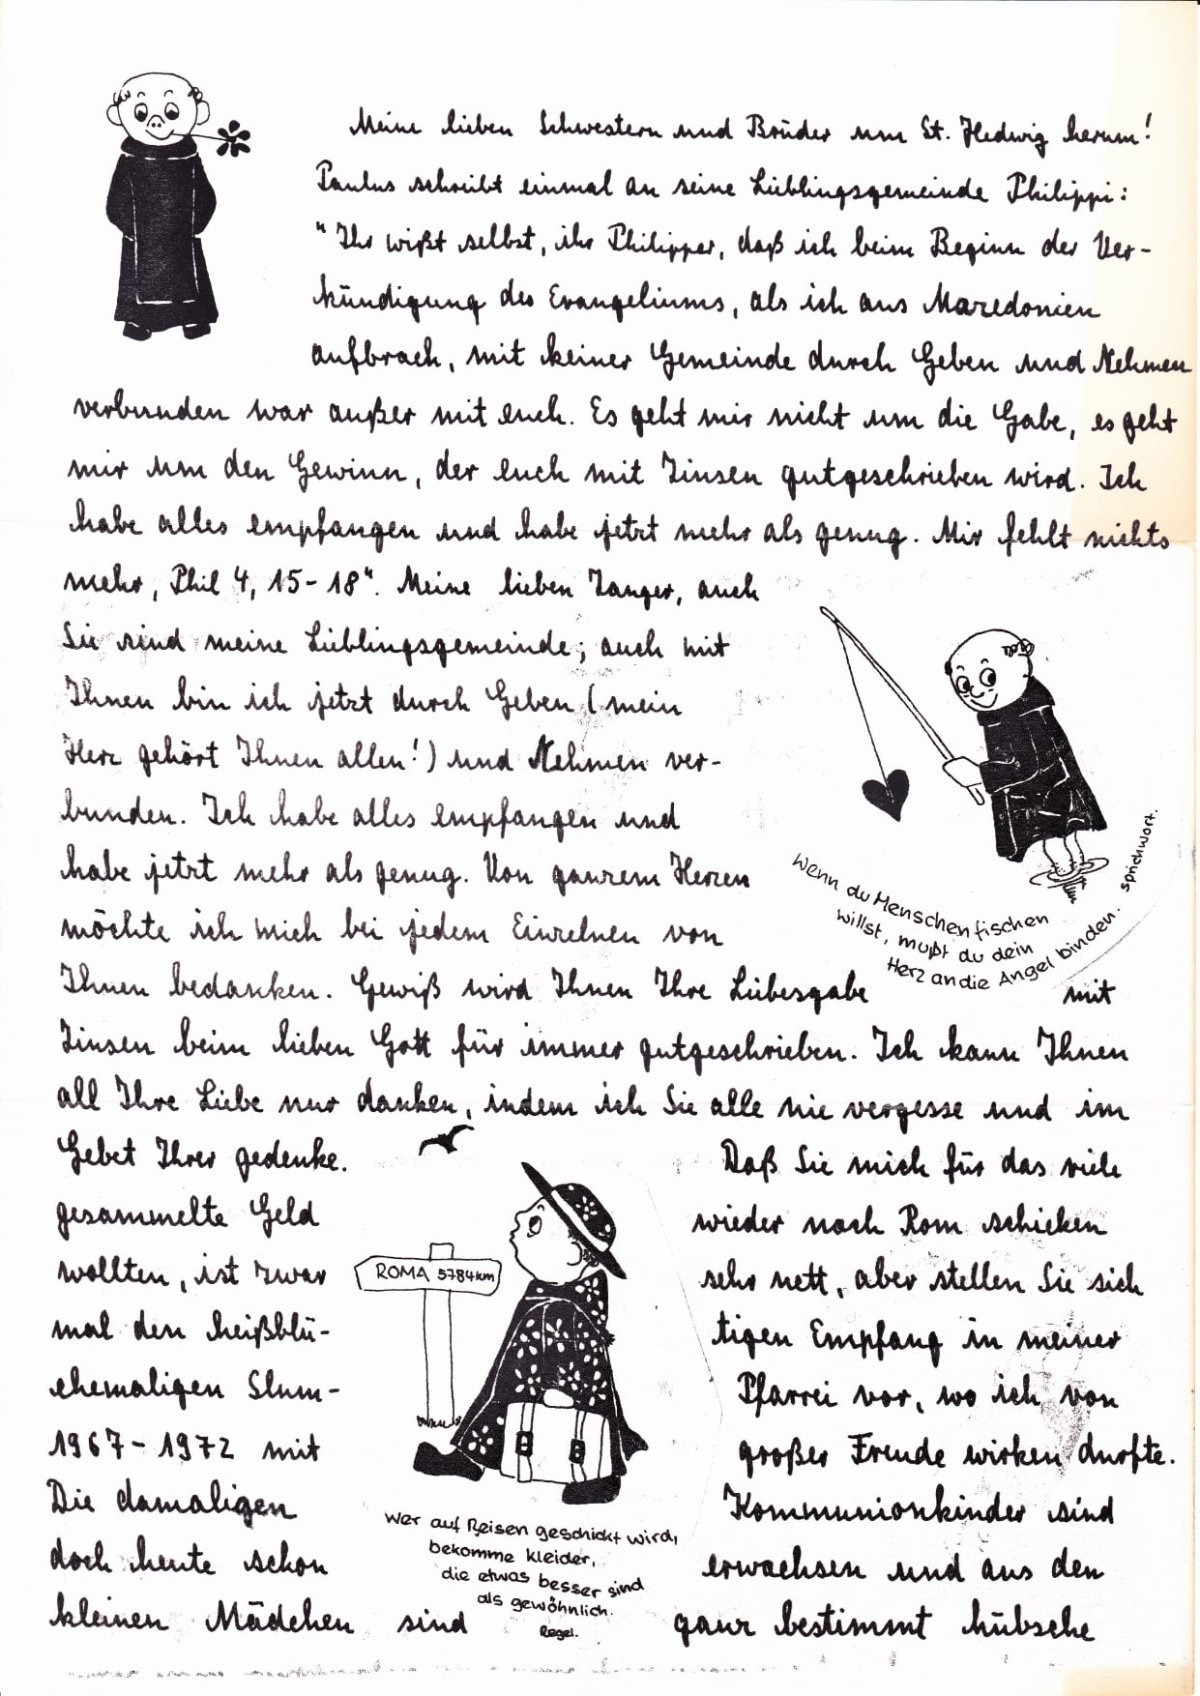 Meine lieben Schwestern und Brüder um St. Hedwig herum!
Paulus schreibt einmal an seine Lieblingsgemeinde Philippi:
"Ihr wißt selbst, ihr Philipper, daß ich beim Beginn der Ver-
kündigung des Evangeliums, als ich aus Mazedonien
aufbrach, mit keiner Gemeinde durch Geben und Nehmen
verbunden war außer mit euch. Es geht mir nicht um die Gabe, es geht
mir um den Gewinn, der euch mit Zinsen gutgeschrieben wird. Ich
habe alles empfangen und habe jetzt mehr als genug. Mir fehlt nichts
mehr, Phil 4, 15-18". Meine lieben Zanger, auch
Sie sind meine Lieblingsgemeinde; auch mit
Ihnen bin ich jetzt durch Geben (mein
Herz gehört Ihnen allen!) und Nehmen ver-
bunden. Ich habe alles empfangen und
habe jetzt mehr als genug. Von ganzem Herzen
möchte ich mich bei jedem Einzelnen von
Ihnen bedanken. Gewiß wird Ihnen Ihre Liebesgabe mit
Zinsen beim lieben Gott für immer gutgeschrieben. Ich kann Ihnen
all Ihre Liebe nur danken, indem ich Sie alle nie vergesse und im
Gebet Ihrer gedenke. Daß Sie mich für das viele
gesammelte Geld wieder nach Rom schicken
wollten, ist zwar sehr nett, aber stellen Sie sich
mal den heißblü- tigen Empfang in meiner
ehemaligen Slum- Pfarrei vor, wo ich von
1967-1972 mit großer Freude wirken durfte.
Die damaligen Kommunionkinder sind
doch heute schon erwachsen und aus den
kleinen Mädchen sind ganz bestimmt hübsche
Wenn du Menschen fischen
willst, mußt du dein
Herz an die Angel binden.
Sprichwort.
ROMA 5784km
Wer auf Reisen geschickt wird,
bekomme Kleider,
die etwas besser sind
als gewöhnlich.
Regel.